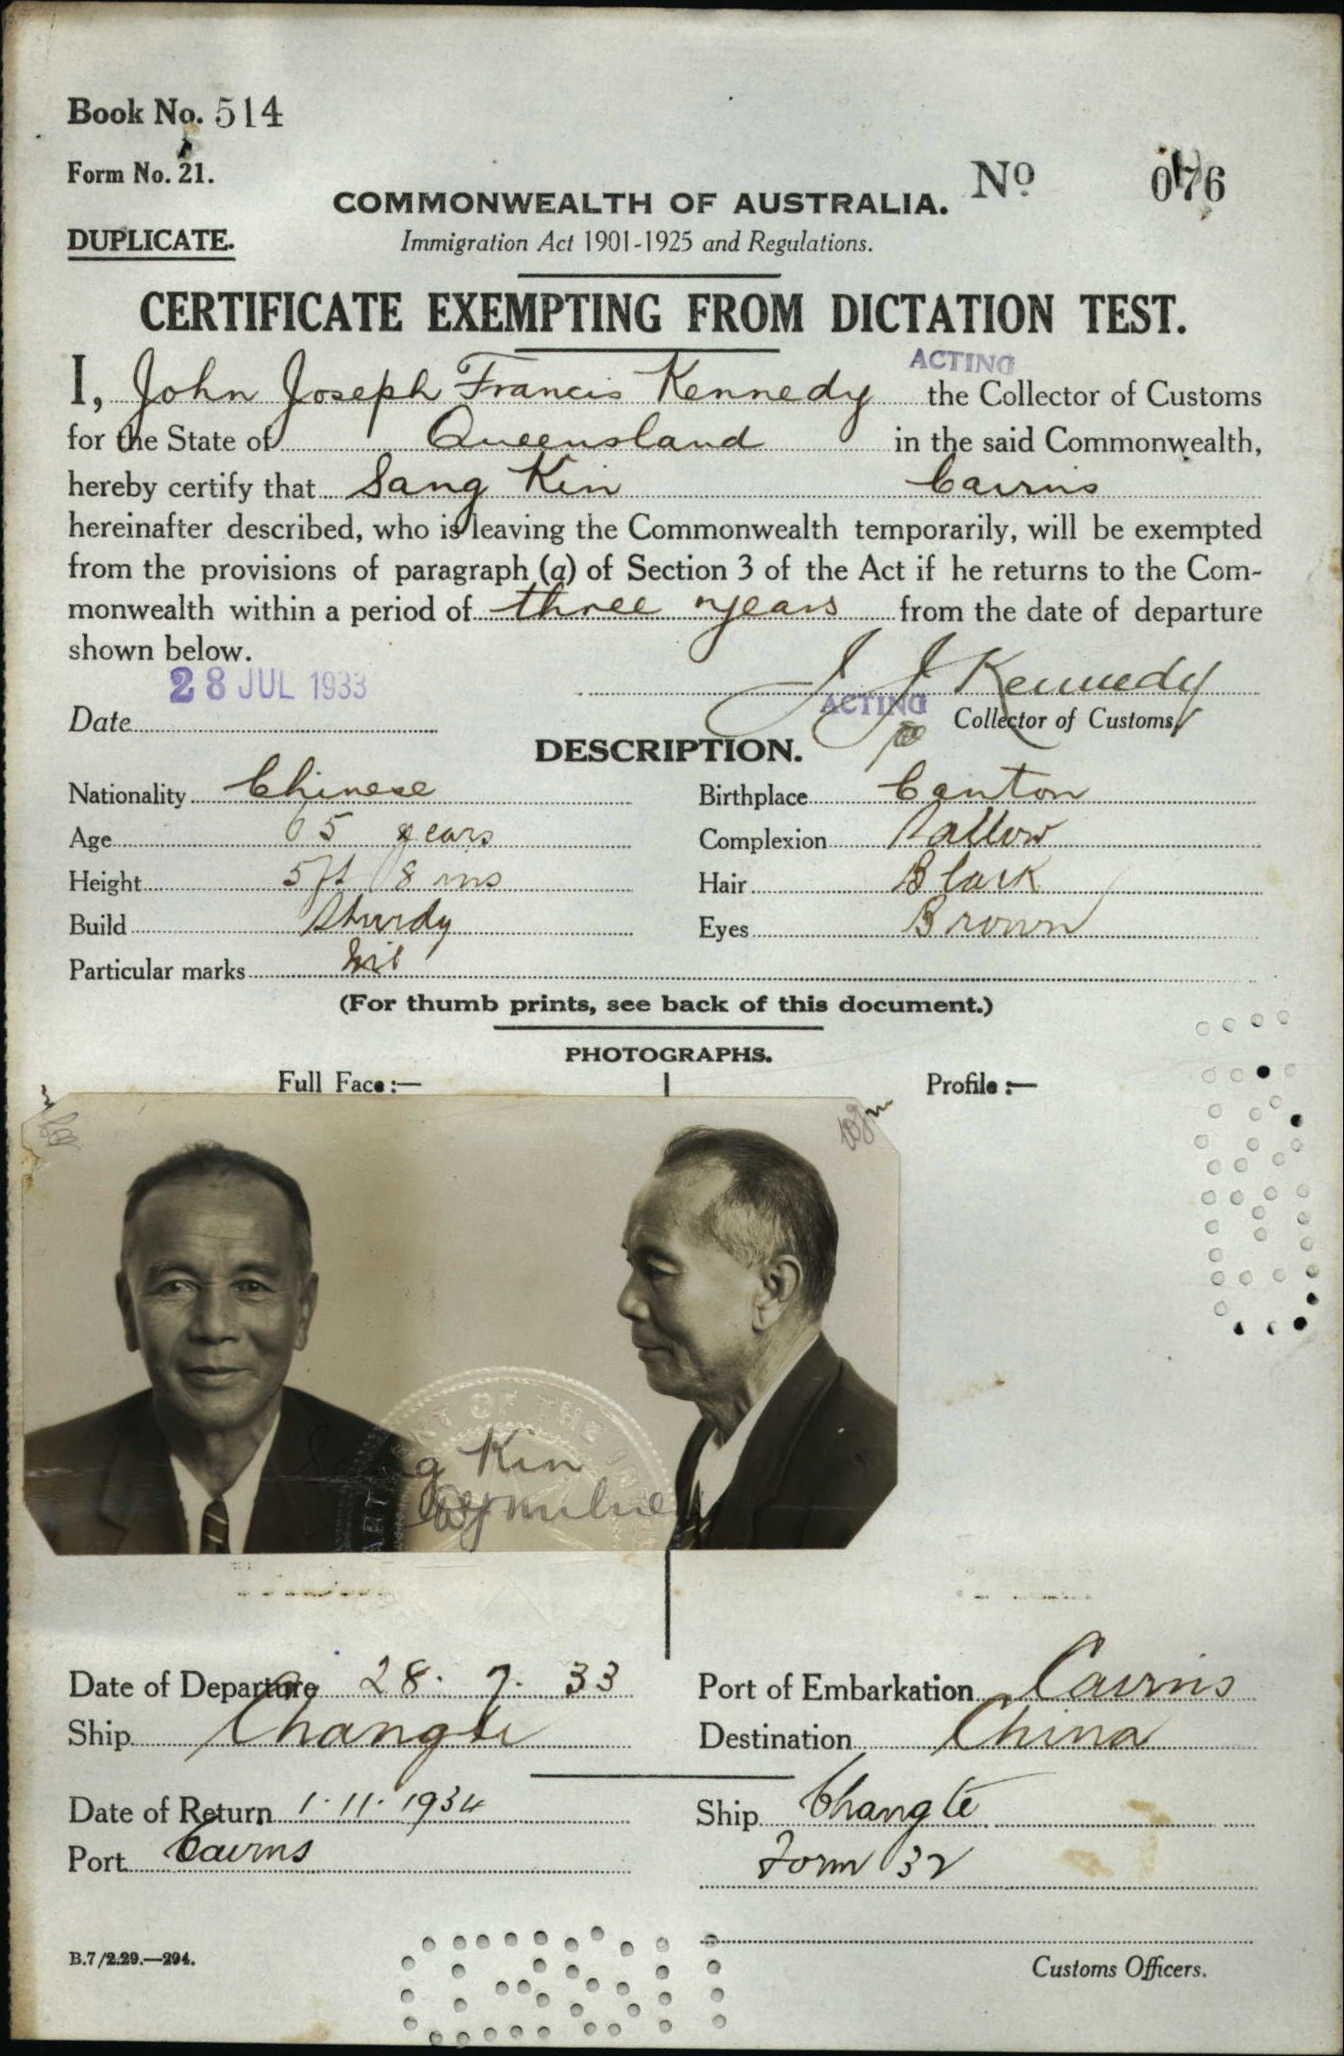 Book No. 514
Form No. 21.
No 076
COMMONWEALTH OF AUSTRALIA.
DUPLICATE.
Immigration Act 1901-1925 and Regulations.
CERTIFICATE EXEMPTING FROM DICTATION TEST.
ACTING
I, John Joseph Francis Kennedy the Collector of Customs
for the State of Queensland in the said Commonwealth,
hereby certify that Sang Kin Cairns
hereinafter described, who is leaving the Commonwealth temporarily, will be exempted
from the provisions of paragraph (a) of Section 3 of the Act if he returns to the Com-
monwealth within a period of three years from the date of departure
shown below.
28 JUL 1933
J J Kennedy
Date
ACTING
Collector of Customs
DESCRIPTION.
Nationality Chinese Birthplace Canton
Age 65 years Complexion Sallow
Height 5ft 8 ins Hair Black
Build Sturdy Eyes Brown
Particular marks Nil
(For thumb prints, see back of this document.)
PHOTOGRAPHS.
Full Face:— Profile:—
OF THE
g Kin
Date of Departure 28. 7. 33 Port of Embarkation Cairns
Ship Changte Destination China
Date of Return 1. 11. 1934 Ship Changte
Port Cairns Form 32
B.7/2.29.—294.
Customs Officers.